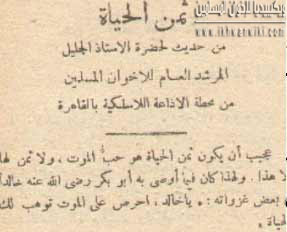 ويكيبيديا الإخوان المسلمين
www.ikhwanwiki.com
ثمن الحياة
من حديث لحضرة الاستاذ الجليل
المرشد العام للاخوان المسلمين
من محطة الاذاعة اللاسلكية بالقاهرة
عجيب أن يكون ثمن الحياة هو حب الموت، ولا ثمن لها
هذا. ولهذا كان فيما أوصى به أبو بكر رضى الله عنه خالداً
بعض غزواته: « ياخالد، احرص على الموت توهب لك
الحياة »